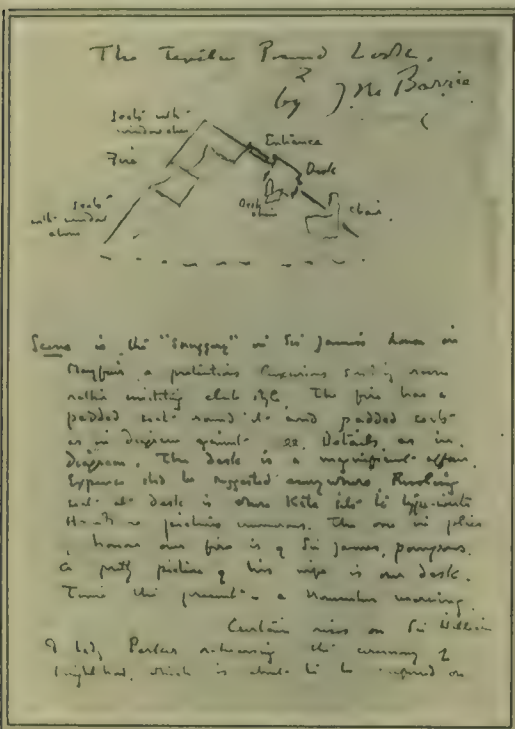 The Twelve Pound Look.
by J. M. Barrie
Seats with
window above
Fire
Entrance
Desk
Desk
chair
chair
seats
with window
above
Scene is the "snuggery" in Sir James's house in
Mayfair a pretentious luxurious smoking room
rather imitating club style. The fire has a
padded seat round it and padded seats
as in diagram against Details as in
diagram. The desk is a magnificent affair
Expense shd be suggested everywhere. Revolving
seat at desk is where Kate sits to type-write
pictures numerous. The one in place
honour over fire is of Sir James, pompous.
A pretty picture of his wife is over desk.
Time the present - a November morning
Curtain rises on Sir William
& Lady Parker rehearsing the ceremony of
knighthood, which is about to be conferred on